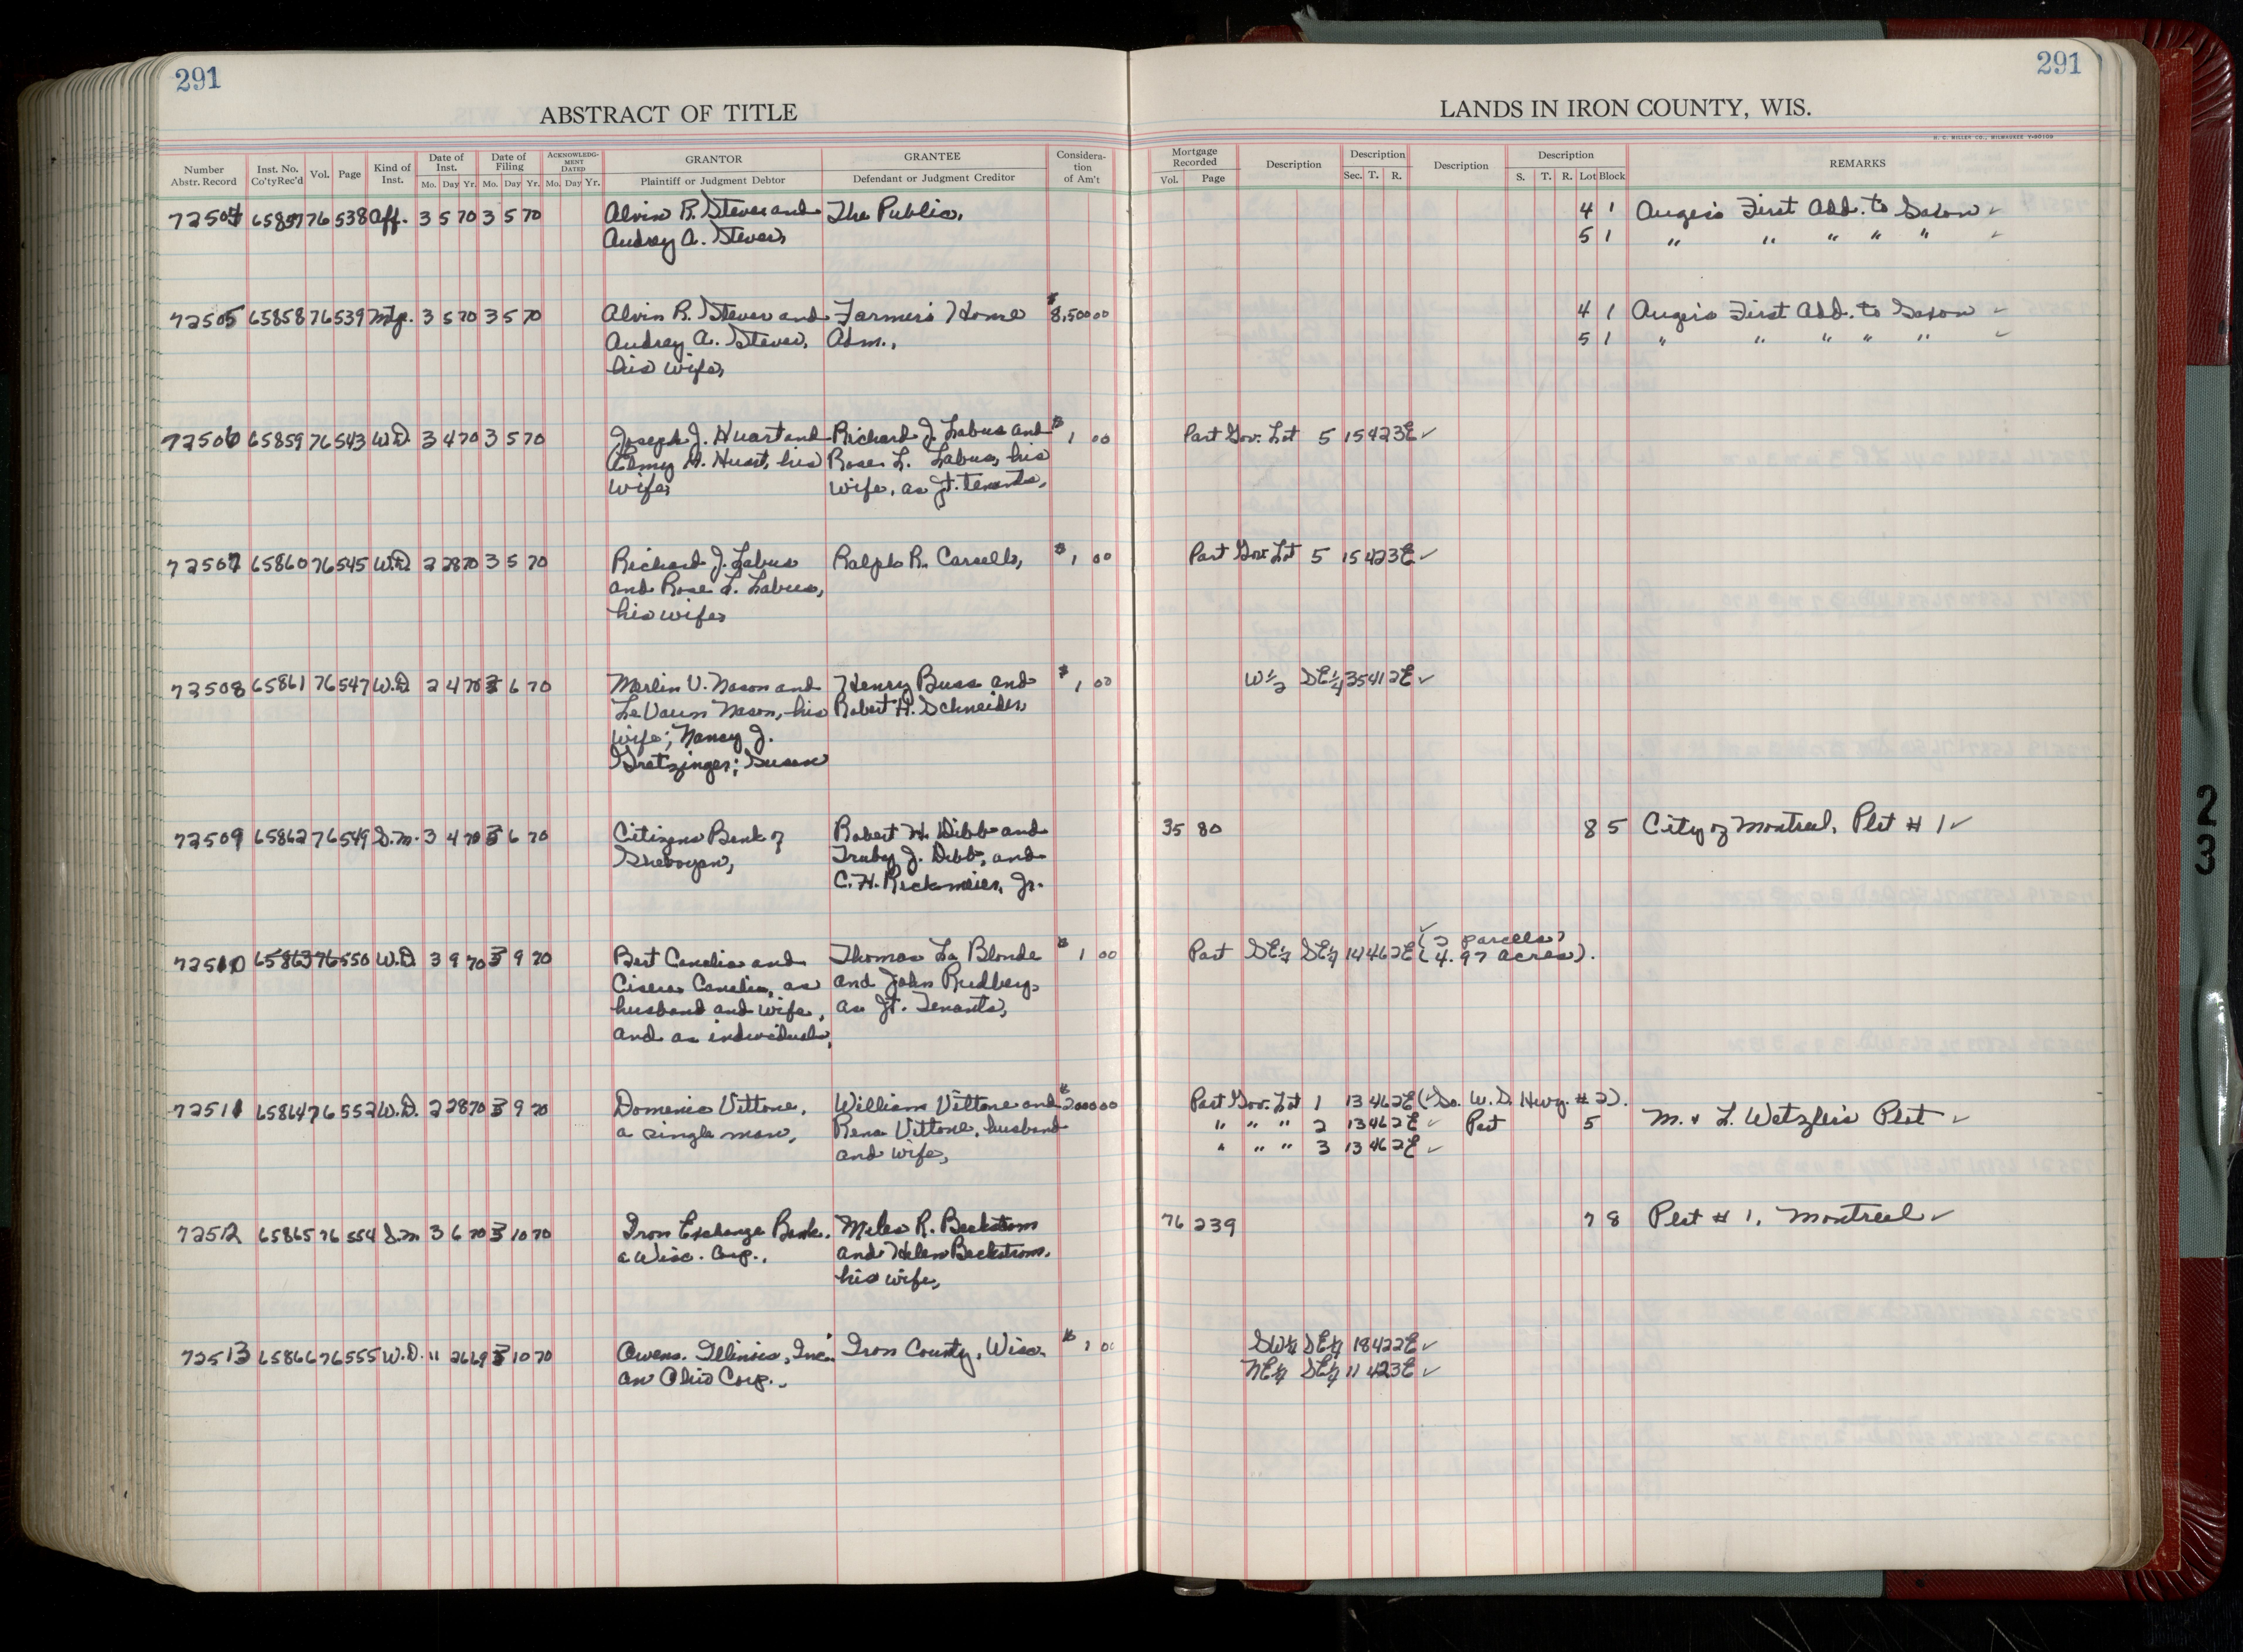 291
291
ABSTRACT OF TITLE
LANDS IN IRON COUNTY, WIS.
H. C. MILLER CO., MILWAUKEE
Number Abstr. Record Inst. No. Co'tyRec'd Vol. Page Kind of Inst. Date of Inst. Mo. Day Yr. Date of Filing Mo. Day Yr. ACKNOWLEDGMENT DATED Mo. Day Yr. GRANTOR Plaintiff or Judgment Debtor GRANTEE Defendant or Judgment Creditor Consideration of Am't Mortgage Recorded Vol. Page Description Description Sec. T. R. Description Description S. T. R. Lot Block REMARKS
72504 65857 76 538 Aff. 3 5 70 3 5 70 Alvin R. Stever and The Public, 4 1 Auger's First Add. to Saxon ✓
Audrey A. Stever, 5 1 " " " " " ✓
72505 65858 76 539 Mtg. 3 5 70 3 5 70 Alvin R. Stever and Farmer's Home $8,500 00 4 1 Auger's First Add. to Saxon ✓
Audrey A. Stever, Adm., 5 1 " " " " " ✓
his wife,
72506 65859 76 543 W.D. 3 4 70 3 5 70 Joseph J. Huart and Richard J. Labus and $1 00 Part Gov. Lot 5 15 42 3E ✓
H. Huart, his Rose L. Labus, his
wife, wife, as Jt. tenants,
72507 65860 76 545 W.D. 2 28 70 3 5 70 Richard J. Labus Ralph R. Carsello, $1 00 Part Gov. Lot 5 15 42 3E ✓
and Rose L. Labus,
his wife,
72508 65861 76 547 W.D. 2 4 70 3 6 70 Merlin U. Nason and Henry Buss and $1 00 W½ SE¼ 35 41 2E ✓
LeVaun Nason, his Robert H. Schneider,
wife; Nancy J.
Gretzinger; Susan
72509 65862 76 549 S.M. 3 4 70 3 6 70 Citizens Bank of Robert H. Dibb and 35 80 8 5 City of Montreal, Plat # 1 ✓
Sheboygan, Truby J. Dibb, and
C. H. Reckmeier, Jr.
72510 65863 76 550 W.D. 3 9 70 3 9 70 Bert Canelia and Thomas La Blonde $1 00 Part SE¼ SE¼ 14 46 2E (2 parcels)
Canelia, as and John Rudberg, (4.97 acres).
husband and wife, as Jt. Tenants,
and as individuals,
72511 65864 76 552 W.D. 2 28 70 3 9 70 Domenic Vittone, William Vittone and $2000 00 Part Gov. Lot 1 13 46 2E (So. W. S. Hwy. # 2).
a single man, Rena Vittone, husband " " " 2 13 46 2E ✓ Part 5 M. & L. Wetzler's Plat ✓
and wife, " " " 3 13 46 2E ✓
72512 65865 76 554 S.M 3 6 70 3 10 70 Iron Exchange Bank, Miles R. Beckstrom 76 239 7 8 Plat # 1, Montreal ✓
a Wisc. Corp., and Helen Beckstrom,
his wife,
72513 65866 76 555 W.D. 11 26 69 3 10 70 Owens-Illinois, Inc., Iron County, Wisc. $1 00 SW¼ SE¼ 18 42 2E ✓
an Ohio Corp., NE¼ SE¼ 11 42 3E ✓
2
3